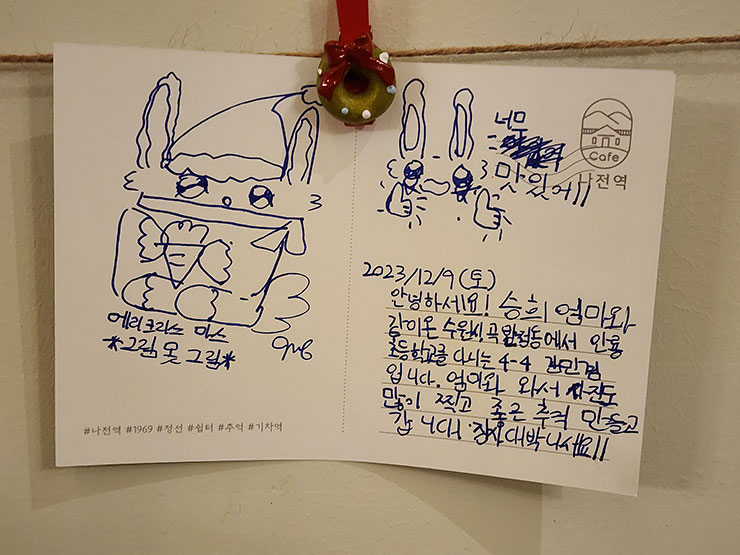 메리크라스 마스
*그림 못 그림*
#나전역 #1969 #정선 #쉼터 #추억 #기차역
너무
맛있어!!
Cafe
나전역
2023/12/9(토)
안녕하세요! 승희 엄마와
같이온 수원시 에서 안룡
초등학교를 다니는 4-4
입니다. 엄마와 와서 사진도
많이 찍고 좋은 추억 만들고
갑니다! 장사대박나세요!!